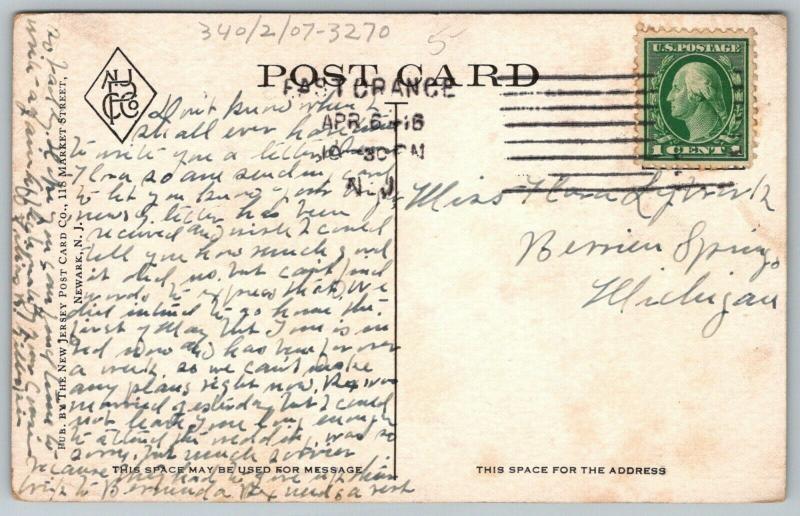 340/2/07-3270
5
POST CARD
U.S. POSTAGE
1 CENT 1
NJ
PC Co
EAST ORANGE
APR 6 - 16
10 30 PM
N.J.
Don't know when I
shall ever have time
to write you a letter
Flora so are sending card
to let you know your
newsy letter has been
received and wish I could
tell you how much good
it did us, but can't find
words to express that. We
did intend to go home the
first of May but June is in
bed now and has been for over
a week, so we can't make
any plans right now. Rex was
married yesterday but I could
not leave June long enough
to attend the wedding, was so
sorry, but much
because they had to give up their
trip to Bermuda. Rex needs a rest
so badly. Hope you can
write again
Miss Flora
Berrien Springs
Michigan
PUB. BY THE NEW JERSEY POST CARD CO., 118 MARKET STREET,
NEWARK, N. J.
THIS SPACE MAY BE USED FOR MESSAGE
THIS SPACE FOR THE ADDRESS